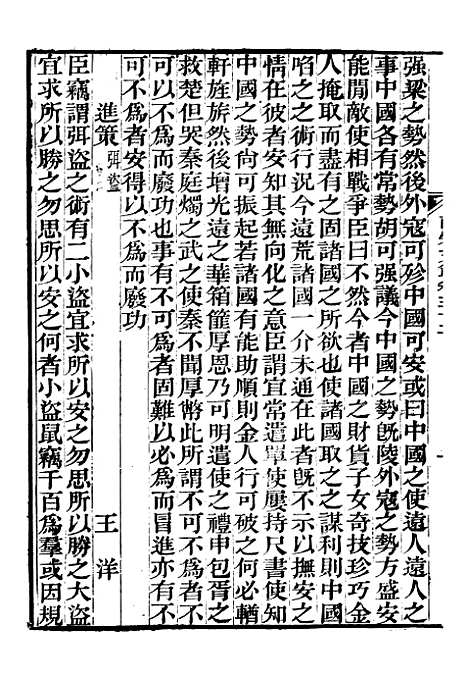 强梁之勢然後外寇可殄中國可安或曰中國之使遠人遠人之
事中國各有常勢胡可强議今中國之勢旣陵外寇之勢方盛安
能閒敵使相戰爭臣曰不然今者中國之財貨子女奇技珍巧金
人掩取而盡有之固諸國之所欲也使諸國取之之謀利則中國
陷之之術行況今遠荒諸國一介未通在此者旣不示以撫安之
情在彼者安知其無向化之意臣謂宜常遣單使屢持尺書使知
中國之勢向可振起若諸國有能助順則金人行可破之何必輶
軒旌旂然後增光遠之華箱篚厚恩乃可明遣使之禮申包胥之
救楚但哭秦庭燭之武之使秦不聞厚幣此所謂不可不爲者不
可以不爲而廢功也事有不可爲者固難以必爲而冒進亦有不
可不爲者安得以不爲而廢功
進策弭盜
王洋
臣竊謂弭盜之術有二小盜宜求所以安之勿思所以勝之大盜
宜求所以勝之勿思所以安之何者小盜鼠竊千百爲羣或因規